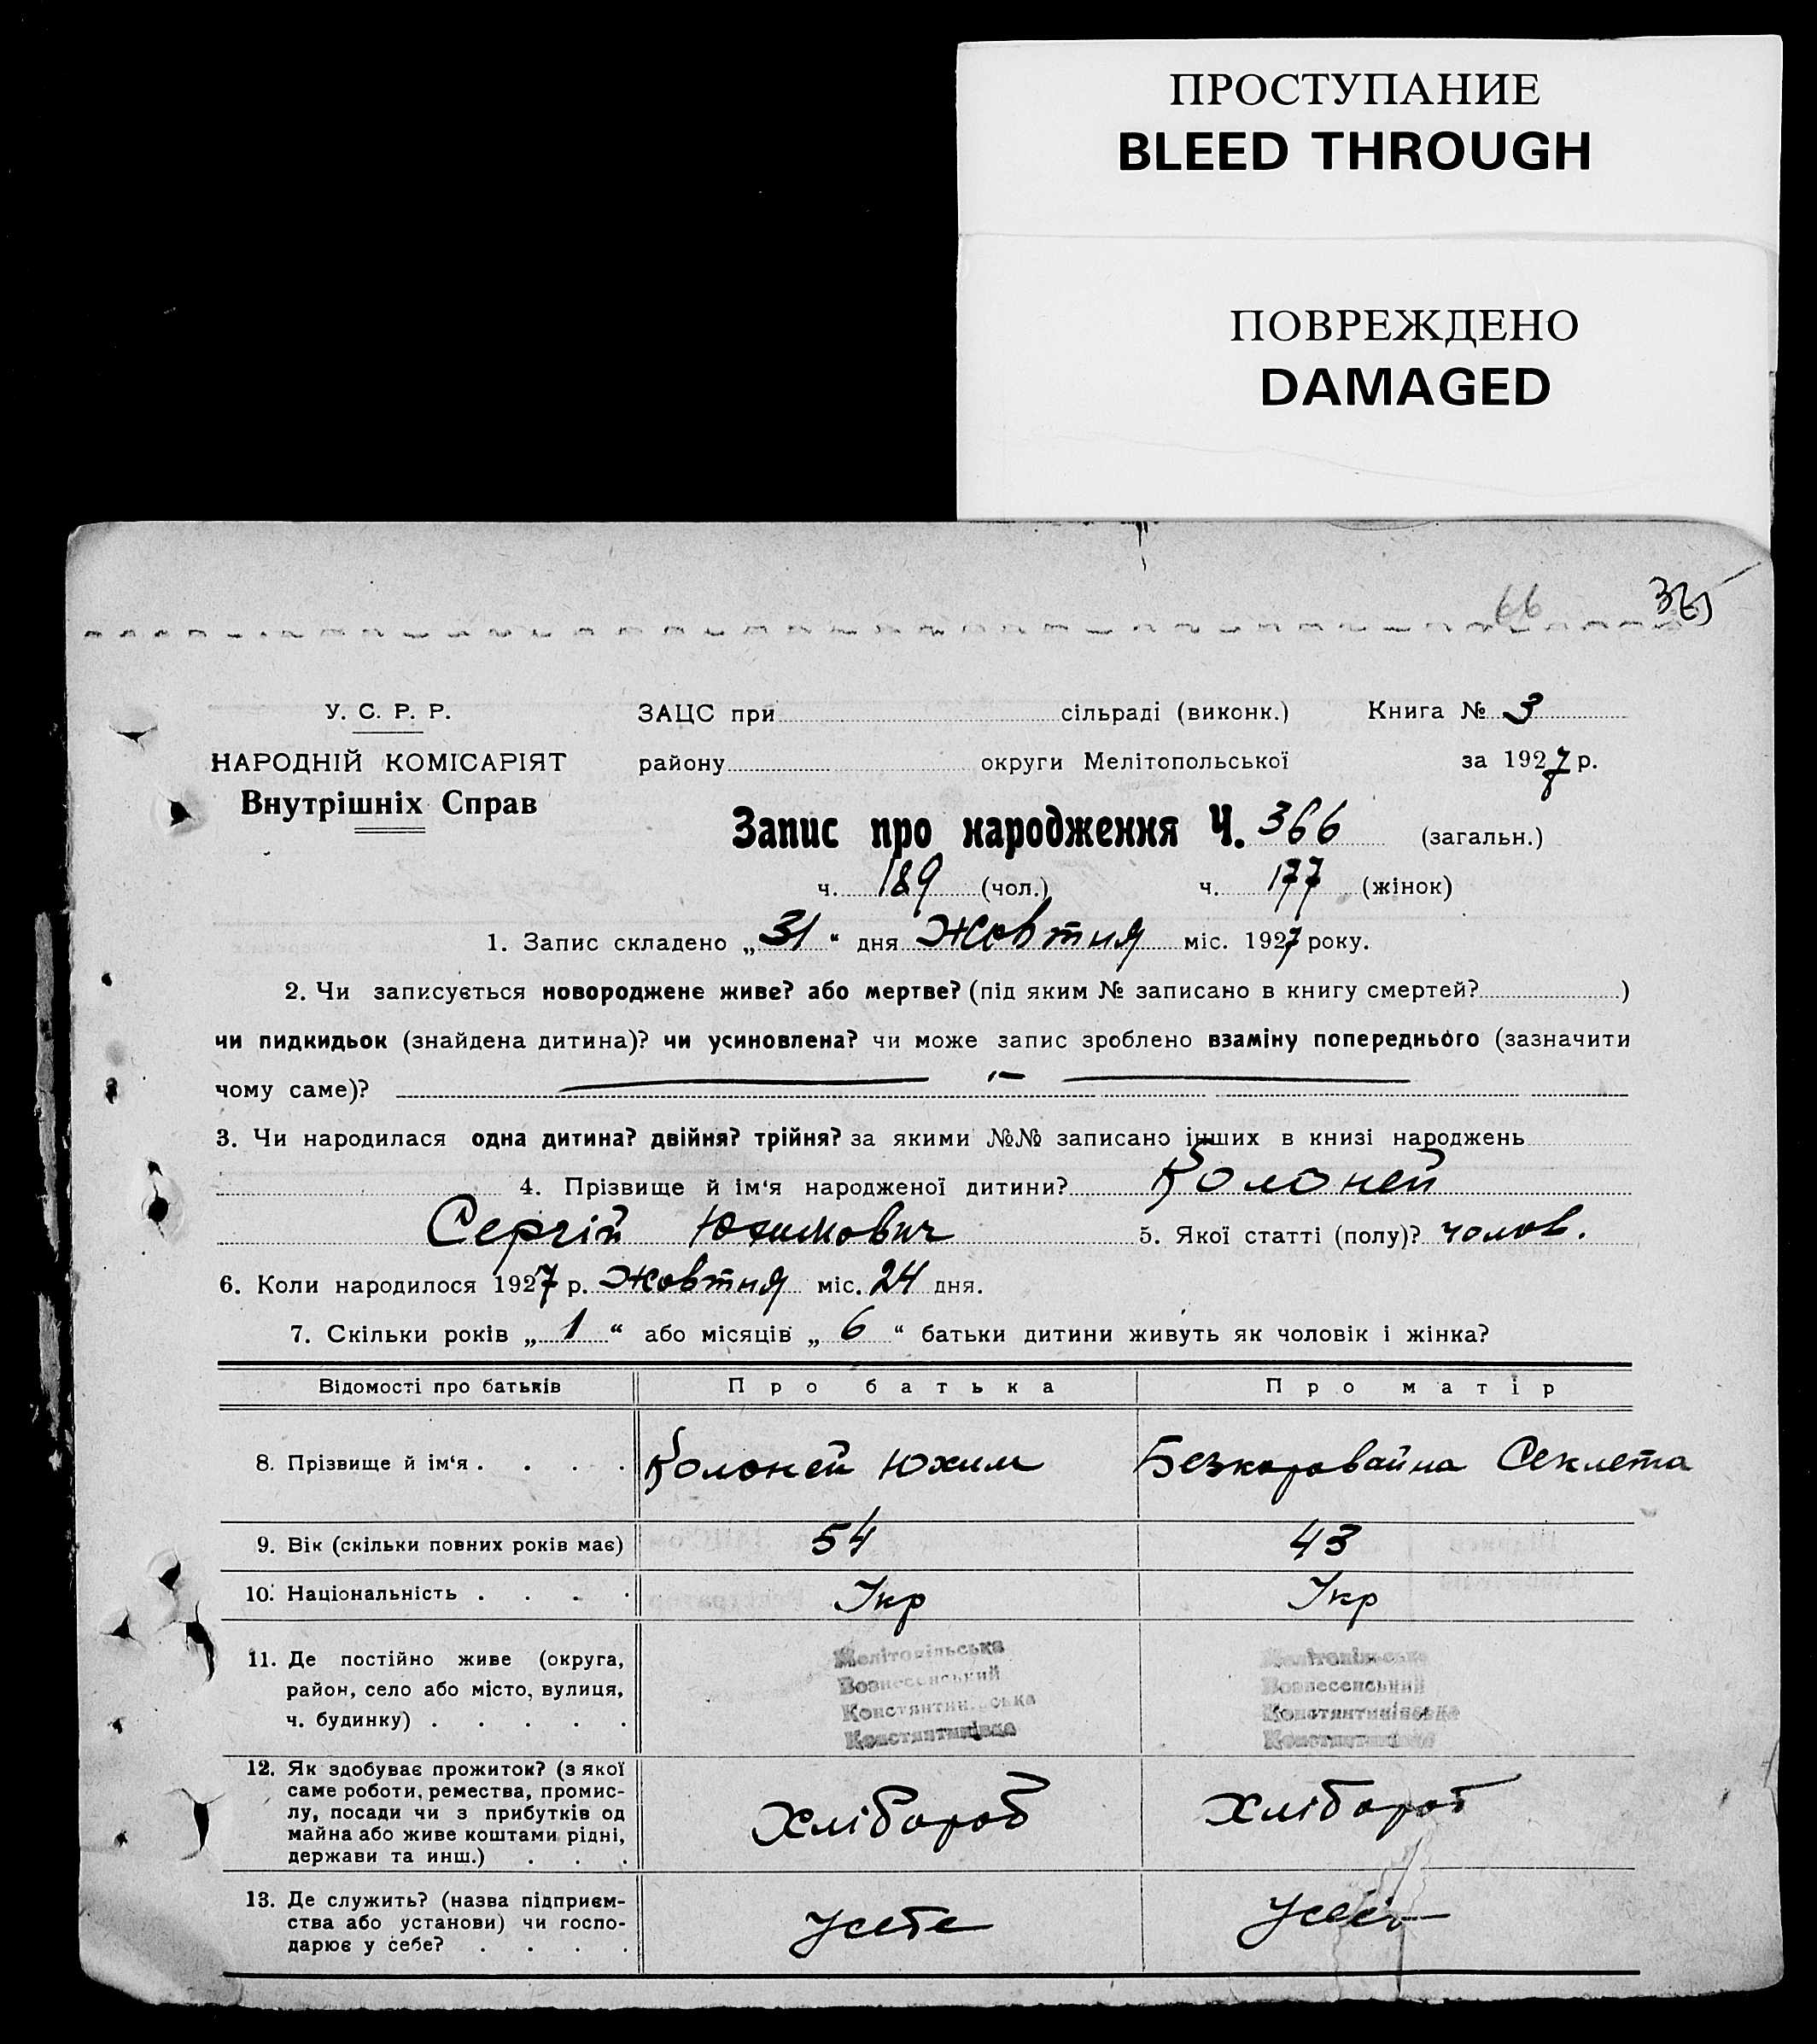 ПРОСТУПАНИЕ
BLEED THROUGH
ПОВРЕЖДЕНО
DAMAGED
66
У. С. Р. Р. ЗАЦС при сільраді (виконк.) Книга № 3
НАРОДНІЙ КОМІСАРІЯТ району округи Мелітопольської за 1927 р.
Внутрішніх Справ
Запис про народження Ч. 366 (загальн.)
ч. 189 (чол.) ч. 177 (жінок)
1. Запис складено „31“ дня Жовтня міс. 1927 року.
2. Чи записується новороджене живе? або мертве? (під яким № записано в книгу смертей? )
чи пидкидьок (знайдена дитина)? чи усиновлена? чи може запис зроблено взаміну попереднього (зазначити
чому саме)?
3. Чи народилася одна дитина? двійня? трійня? за якими №№ записано інших в книзі народжень
4. Прізвище й ім'я народженої дитини? Колоней
Сергій Юхимович 5. Якої статті (полу)? чолов.
6. Коли народилося 1927 р. Жовтня міс. 24 дня.
7. Скільки років „1“ або місяців „6“ батьки дитини живуть як чоловік і жінка?
Відомості про батьків Про батька Про матір
8. Прізвище й ім'я . . . . Колоней Юхим Безкоровайна Секлета
9. Вік (скільки повних років має) 54 43
10. Національність . . . . Укр Укр
11. Де постійно живе (округа, Мелітопільська Мелітопільська
район, село або місто, вулиця, Вознесенський Вознесенський
ч. будинку) . . . . . Константинівська Константинівська
Константинівка Константинівка
12. Як здобуває прожиток? (з якої
саме роботи, ремества, промис-
лу, посади чи з прибутків од Хлібороб Хлібороб
майна або живе коштами рідні,
держави та инш.) . . .
13. Де служить? (назва підприєм-
ства або установи) чи госпо- Усебе Усебе
дарює у себе? . . . .